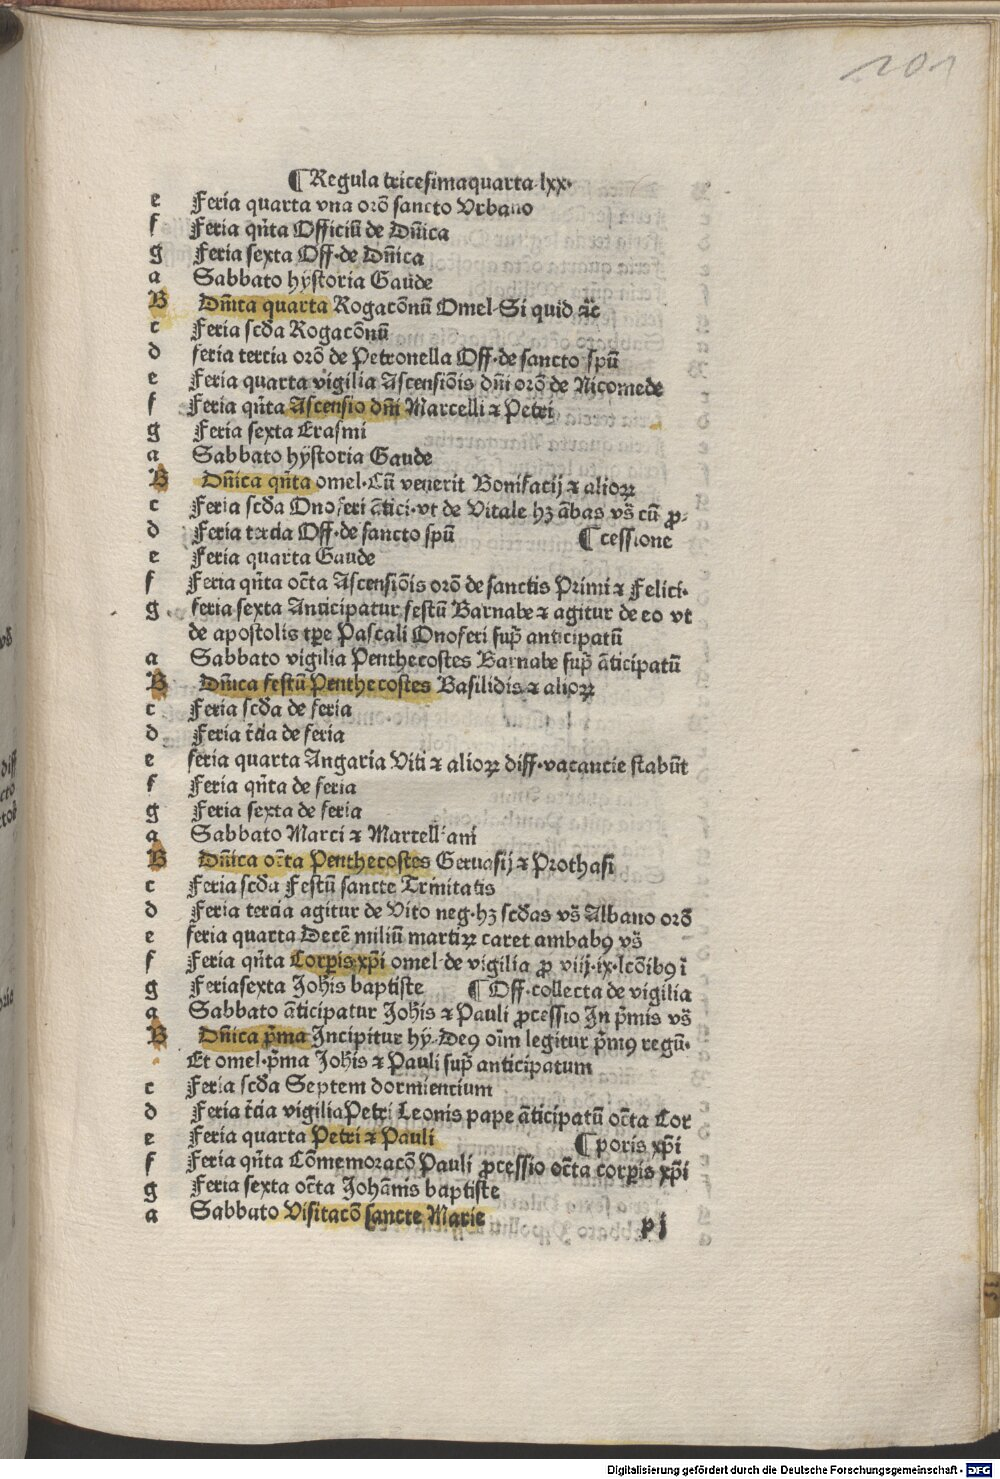 101
¶Regula tricesimaquarta·lxx·
e Feria quarta vna orõ sancto Vrbano
f Feria qñta Officiũ de Dñica
g Feria sexta Off·de Dñica
a Sabbato hÿstoria Gaude
B Dñica quarta Rogacõnũ Omel·Si quid ⁊c̃
c Feria scďa Rogacõnũ
d feria tercia orõ de Petronella Off·de sancto spũ
e Feria quarta vigilia Ascensiõis dñi orõ de Nicomede
f Feria qñta Ascensio dñi Marcelli ⁊ Petri
g Feria sexta Erasmi
a Sabbato hÿstoria Gaude
B Dñica qñta omel·Cũ venerit Bonifacij ⁊ alioꝝ
c Feria scďa Onoferi ãtici·vt de Vitale hꝫ ãbas vs̃ cũ ꝓ-
d Feria tercia Off·de sancto spũ ¶cessione
e Feria quarta Gaude
f Feria qñta oct̃a Ascensiõis orõ de sanctis Primi ⁊ Felici·
g feria sexta Anticipatur festũ Barnabe ⁊ agitur de eo vt
de apostolis tp̃e Pascali Onoferi sup̃ anticipatũ
a Sabbato vigilia Penthecostes Barnabe sup̃ ãticipatũ
B Dñica festũ Penthecostes Basilidis ⁊ alioꝝ
c Feria scďa de feria
d Feria t̃cia de feria
e feria quarta Angaria Viti ⁊ alioꝝ diff·vacancie stabũt
f Feria qñta de feria
g Feria sexta de feria
a Sabbato Marci ⁊ Marcelliani
B Dñica oct̃a Penthecostes Geruasij ⁊ Prothasi
c Feria scďa Festũ sancte Trinitatis
d Feria tercia agitur de Vito neg·hꝫ scďas vs̃ Albano orõ
e feria quarta Decẽ miliũ martiꝝ caret ambabꝰ vs̃
f Feria qñta Corꝑis xp̃i omel·de vigilia ꝓ viij·ix·lcõibꝰ ĩ
g Feriasexta Johis̃ baptiste ¶Off·collecta de vigilia
a Sabbato ãticipatur Johis̃ ⁊ Pauli ꝓcessio In p̃mis vs̃
B Dñica p̃ma Incipitur hÿ·Deꝰ oĩm legitur p̃mꝰ regũ·
Et omel·p̃ma Johis̃ ⁊ Pauli sup̃ anticipatum
c Feria scďa Septem dormiencium
d Feria t̃cia vigiliaPetri Leonis pape ãticipatũ oct̃a Cor
e Feria quarta Petri ⁊ Pauli ¶poris xp̃i
f Feria qñta Cõmemoracõ Pauli ꝓcessio oct̃a corꝑis xp̃i
g Feria sexta oct̃a Johãnis baptiste
a Sabbato Visitacõ sancte Marie
pj
Digitalisierung gefördert durch die Deutsche Forschungsgemeinschaft · DFG